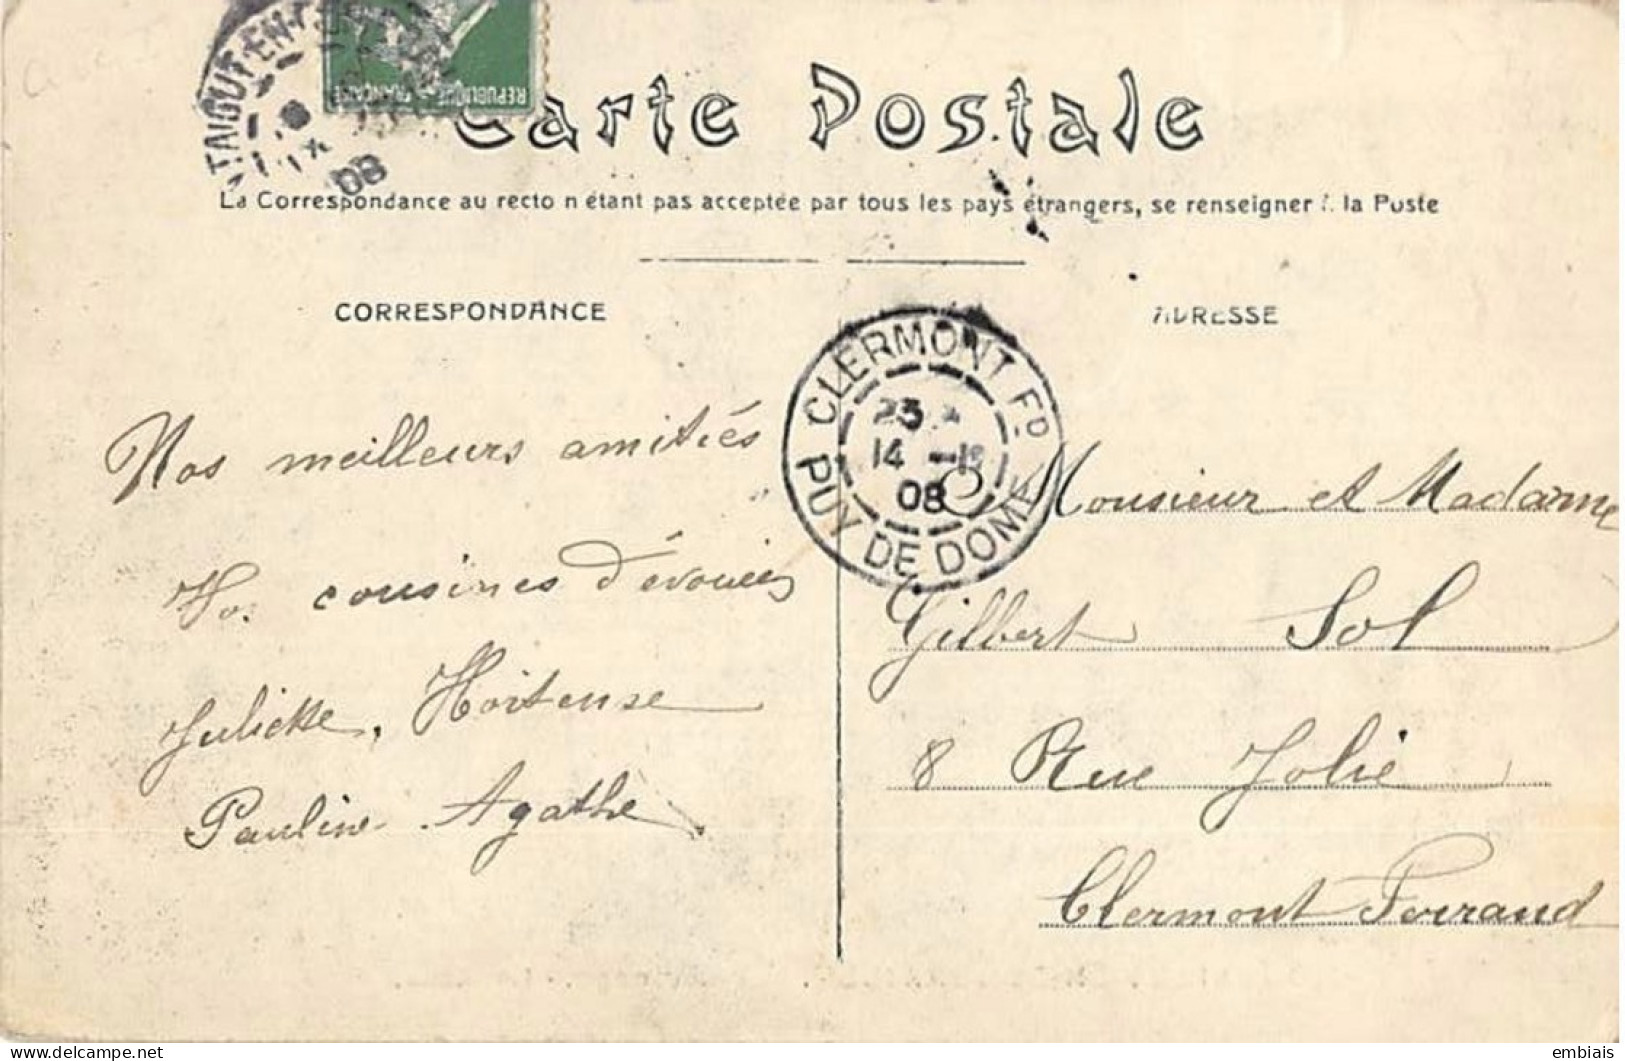 RÉPUBLIQUE FRANÇAISE
08
Carte Postale
La Correspondance au recto n'étant pas acceptée par tous les pays étrangers, se renseigner à la Poste
CORRESPONDANCE
ADRESSE
CLERMONT FD
14
08
PUY DE DOME
Nos meilleurs amitiés
Vos cousines dévouées
Juliette, Hortense
Pauline Agathe
Monsieur et Madame
Gilbert Sol
8 Rue Jolie
Clermont Ferrand
delcampe.net
embiais